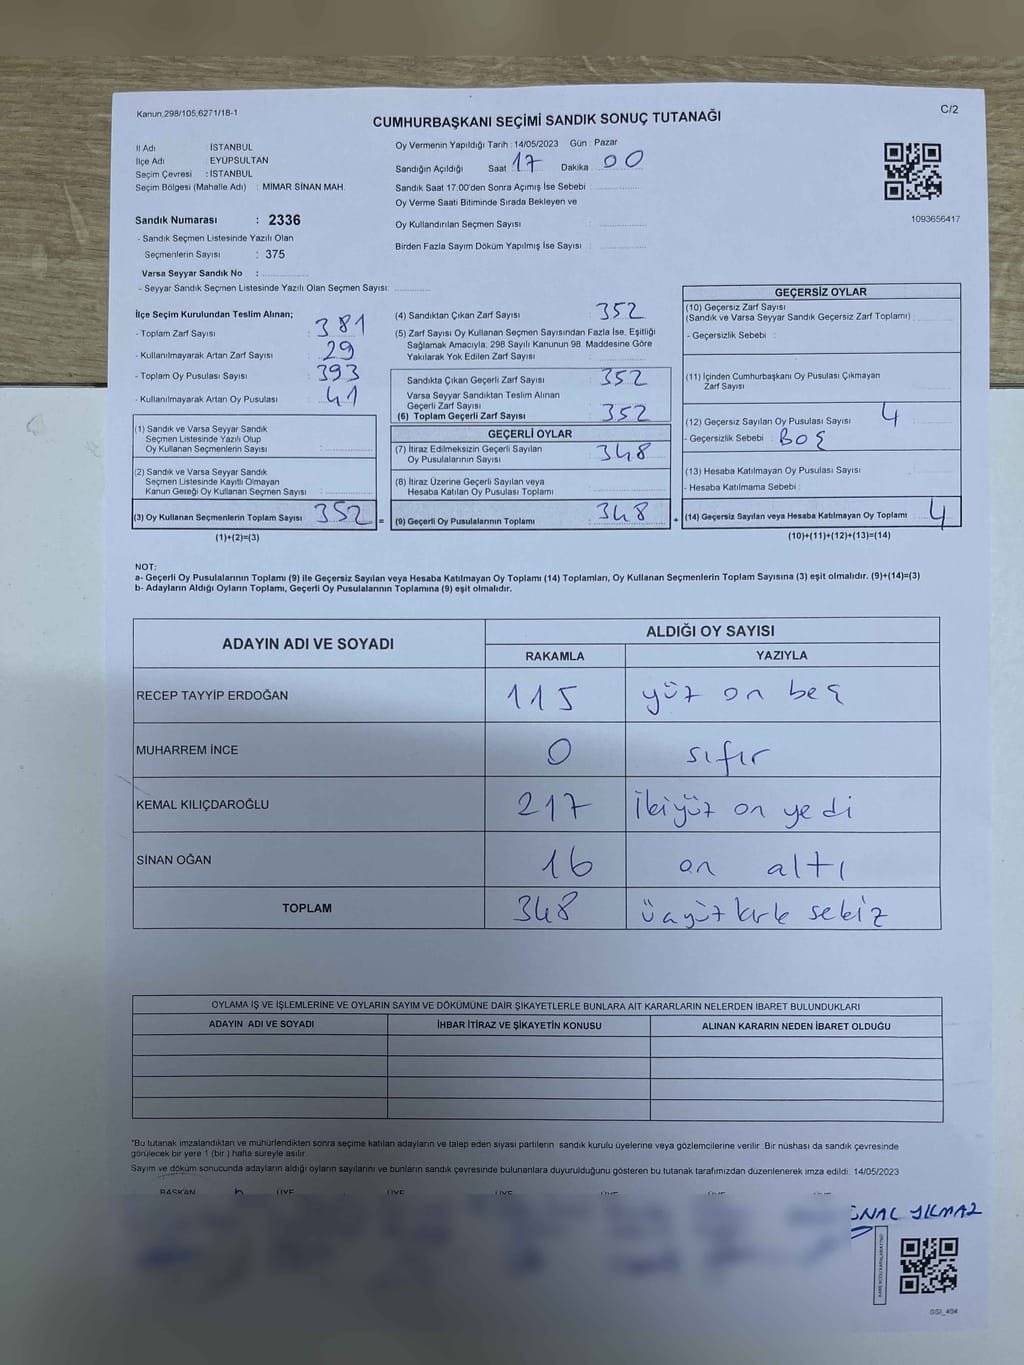 Kanun:298/105;6271/18-1
C/2
CUMHURBAŞKANI SEÇİMİ SANDIK SONUÇ TUTANAĞI
İl Adı : İSTANBUL
İlçe Adı : EYÜPSULTAN
Seçim Çevresi : İSTANBUL
Seçim Bölgesi (Mahalle Adı) : MİMAR SİNAN MAH.
Sandık Numarası : 2336
- Sandık Seçmen Listesinde Yazılı Olan
Seçmenlerin Sayısı : 375
Varsa Seyyar Sandık No :
- Seyyar Sandık Seçmen Listesinde Yazılı Olan Seçmen Sayısı:
Oy Vermenin Yapıldığı Tarih : 14/05/2023 Gün : Pazar
Sandığın Açıldığı Saat 17 Dakika 00
Sandık Saat 17:00'den Sonra Açımış İse Sebebi :
Oy Verme Saati Bitiminde Sırada Bekleyen ve
Oy Kullandırılan Seçmen Sayısı :
Birden Fazla Sayım Döküm Yapılmış İse Sayısı :
1093656417
İlçe Seçim Kurulundan Teslim Alınan;
- Toplam Zarf Sayısı : 381
- Kullanılmayarak Artan Zarf Sayısı : 29
- Toplam Oy Pusulası Sayısı : 393
- Kullanılmayarak Artan Oy Pusulası : 41
(1) Sandık ve Varsa Seyyar Sandık
Seçmen Listesinde Yazılı Olup
Oy Kullanan Seçmenlerin Sayısı :
(2) Sandık ve Varsa Seyyar Sandık
Seçmen Listesinde Kayıtlı Olmayan
Kanun Gereği Oy Kullanan Seçmen Sayısı :
(3) Oy Kullanan Seçmenlerin Toplam Sayısı : 352
(1)+(2)=(3)
(4) Sandıktan Çıkan Zarf Sayısı : 352
(5) Zarf Sayısı Oy Kullanan Seçmen Sayısından Fazla İse, Eşitliği
Sağlamak Amacıyla; 298 Sayılı Kanunun 98. Maddesine Göre
Yakılarak Yok Edilen Zarf Sayısı :
Sandıkta Çıkan Geçerli Zarf Sayısı : 352
Varsa Seyyar Sandıktan Teslim Alınan
Geçerli Zarf Sayısı :
(6) Toplam Geçerli Zarf Sayısı : 352
GEÇERLİ OYLAR
(7) İtiraz Edilmeksizin Geçerli Sayılan
Oy Pusulalarının Sayısı : 348
(8) İtiraz Üzerine Geçerli Sayılan veya
Hesaba Katılan Oy Pusulası Toplamı :
= (9) Geçerli Oy Pusulalarının Toplamı : 348
GEÇERSİZ OYLAR
(10) Geçersiz Zarf Sayısı
(Sandık ve Varsa Seyyar Sandık Geçersiz Zarf Toplamı) :
- Geçersizlik Sebebi :
(11) İçinden Cumhurbaşkanı Oy Pusulası Çıkmayan
Zarf Sayısı :
(12) Geçersiz Sayılan Oy Pusulası Sayısı : 4
- Geçersizlik Sebebi : BOŞ
(13) Hesaba Katılmayan Oy Pusulası Sayısı :
- Hesaba Katılmama Sebebi :
+ (14) Geçersiz Sayılan veya Hesaba Katılmayan Oy Toplamı : 4
(10)+(11)+(12)+(13)=(14)
NOT:
a- Geçerli Oy Pusulalarının Toplamı (9) ile Geçersiz Sayılan veya Hesaba Katılmayan Oy Toplamı (14) Toplamları, Oy Kullanan Seçmenlerin Toplam Sayısına (3) eşit olmalıdır. (9)+(14)=(3)
b- Adayların Aldığı Oyların Toplamı, Geçerli Oy Pusulalarının Toplamına (9) eşit olmalıdır.
ADAYIN ADI VE SOYADI
ALDIĞI OY SAYISI
RAKAMLA YAZIYLA
RECEP TAYYİP ERDOĞAN 115 yüz on beş
MUHARREM İNCE 0 sıfır
KEMAL KILIÇDAROĞLU 217 İkiyüz on yedi
SİNAN OĞAN 16 on altı
TOPLAM 348 üçyüz kırk sekiz
OYLAMA İŞ VE İŞLEMLERİNE VE OYLARIN SAYIM VE DÖKÜMÜNE DAİR ŞİKAYETLERLE BUNLARA AİT KARARLARIN NELERDEN İBARET BULUNDUKLARI
ADAYIN ADI VE SOYADI İHBAR İTİRAZ VE ŞİKAYETİN KONUSU ALINAN KARARIN NEDEN İBARET OLDUĞU
*Bu tutanak imzalandıktan ve mühürlendikten sonra seçime katılan adayların ve talep eden siyasi partilerin sandık kurulu üyelerine veya gözlemcilerine verilir. Bir nüshası da sandık çevresinde
görülecek bir yere 1 (bir) hafta süreyle asılır.
Sayım ve döküm sonucunda adayların aldığı oyların sayılarını ve bunların sandık çevresinde bulunanlara duyurulduğunu gösteren bu tutanak tarafımızdan düzenlenerek imza edildi. 14/05/2023
BAŞKAN ÜYE ÜYE ÜYE ÜYE ÜYE ÜYE
YILMAZ